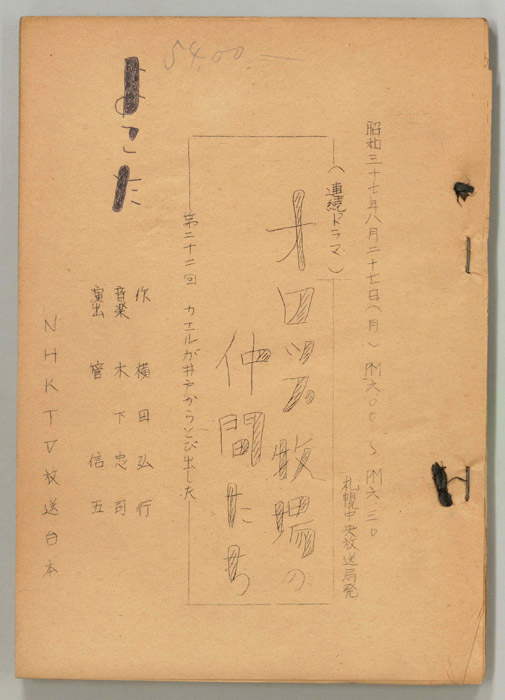 5400—
昭和三十七年八月二十七日(月) PM六・00〜PM六・三0
札幌中央放送局発
(連続ドラマ)
牧場の
仲間たち
第二十二回 カエルが井戸からとび出した
作 横田弘行
音楽 木下忠司
演出 菅信五
よこた
NHKTV放送台本